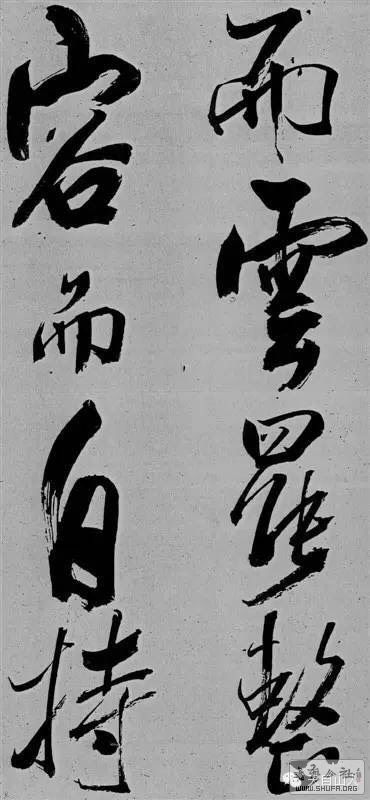 而雲罷整
容而自持
WWW.SHUFA.ORG